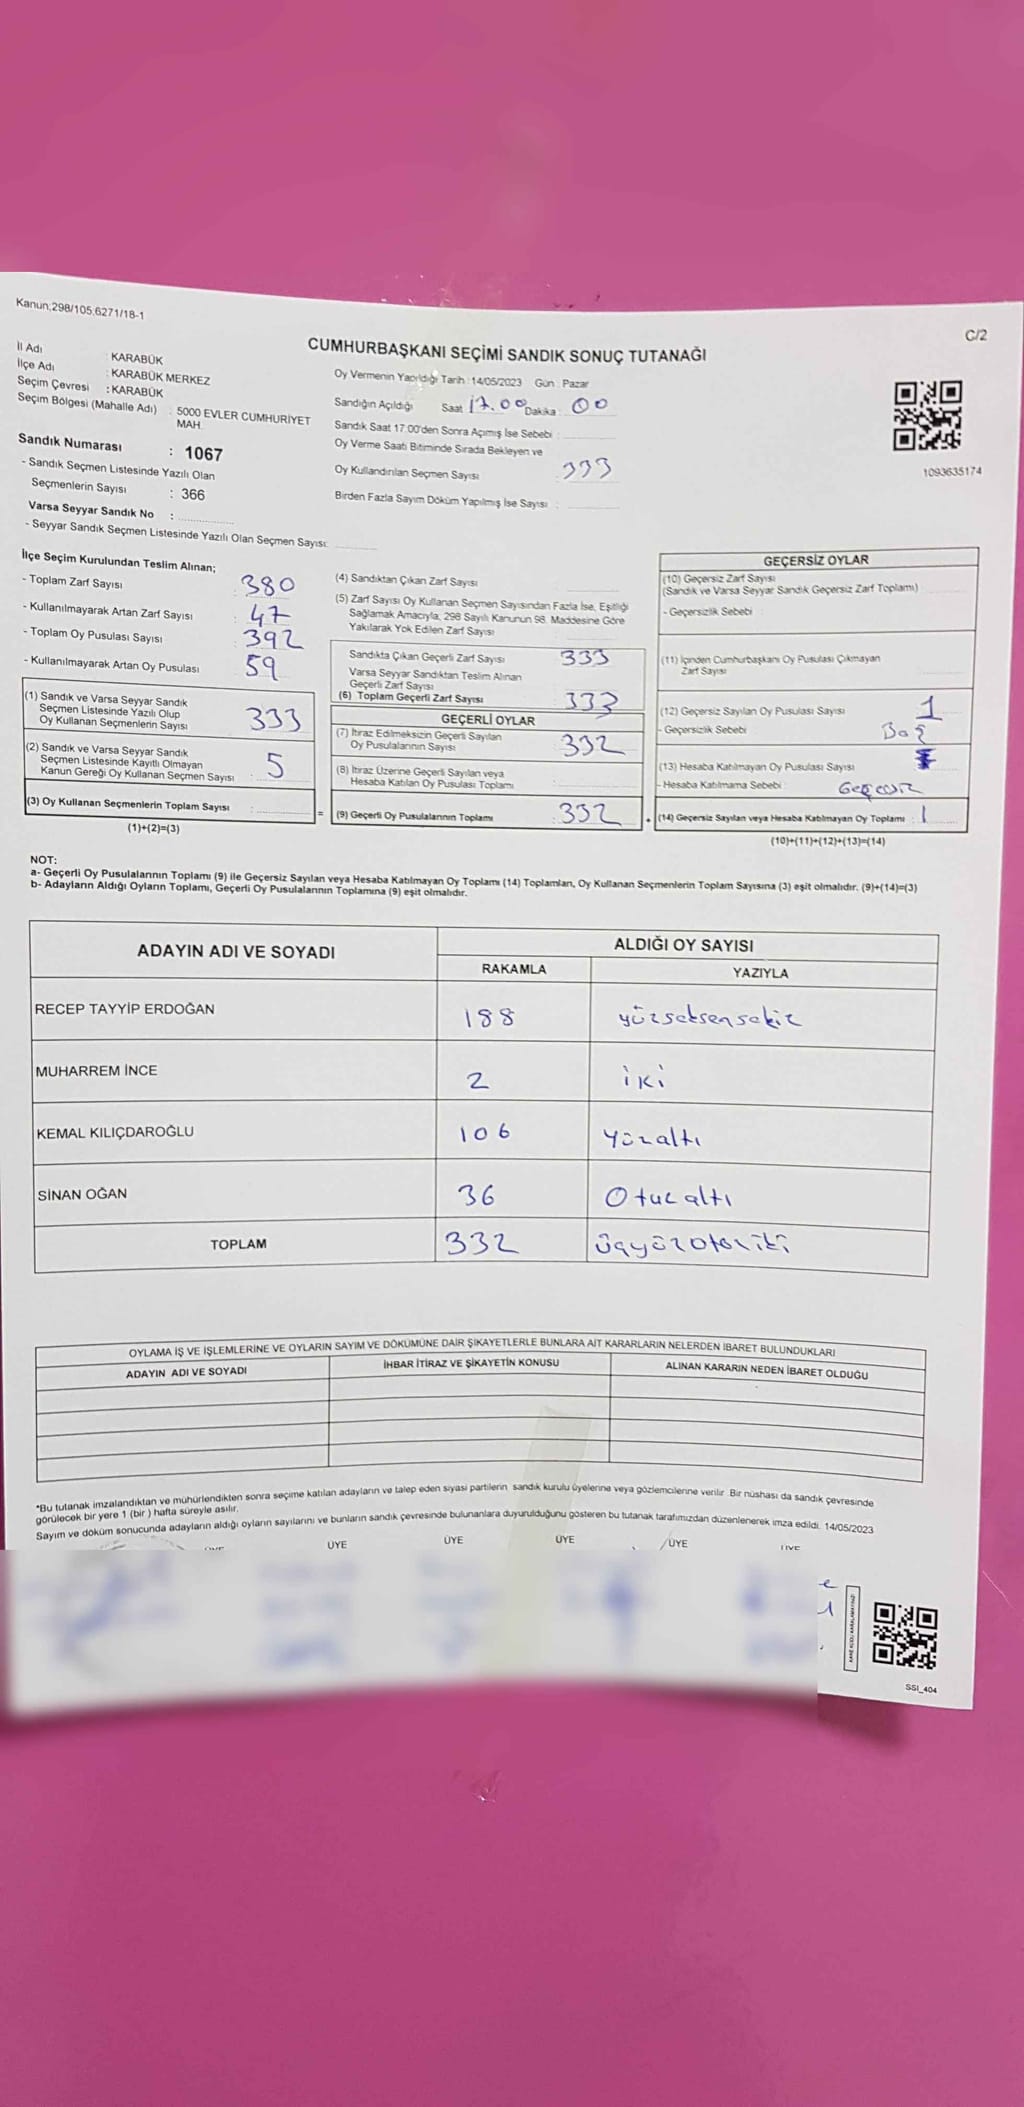 Kanun;298/105;6271/18-1
C/2
CUMHURBAŞKANI SEÇİMİ SANDIK SONUÇ TUTANAĞI
İl Adı : KARABÜK
İlçe Adı : KARABÜK MERKEZ
Seçim Çevresi : KARABÜK
Seçim Bölgesi (Mahalle Adı) : 5000 EVLER CUMHURİYET
MAH.
Sandık Numarası : 1067
- Sandık Seçmen Listesinde Yazılı Olan
Seçmenlerin Sayısı : 366
Varsa Seyyar Sandık No :
- Seyyar Sandık Seçmen Listesinde Yazılı Olan Seçmen Sayısı:
Oy Vermenin Yapıldığı Tarih : 14/05/2023 Gün : Pazar
Sandığın Açıldığı Saat 17.00 Dakika : 00
Sandık Saat 17:00'den Sonra Açımış İse Sebebi :
Oy Verme Saati Bitiminde Sırada Bekleyen ve
Oy Kullandırılan Seçmen Sayısı : 333
Birden Fazla Sayım Döküm Yapılmış İse Sayısı :
1093635174
İlçe Seçim Kurulundan Teslim Alınan;
- Toplam Zarf Sayısı : 380
- Kullanılmayarak Artan Zarf Sayısı : 47
- Toplam Oy Pusulası Sayısı : 392
- Kullanılmayarak Artan Oy Pusulası : 59
(1) Sandık ve Varsa Seyyar Sandık
Seçmen Listesinde Yazılı Olup
Oy Kullanan Seçmenlerin Sayısı : 333
(2) Sandık ve Varsa Seyyar Sandık
Seçmen Listesinde Kayıtlı Olmayan
Kanun Gereği Oy Kullanan Seçmen Sayısı : 5
(3) Oy Kullanan Seçmenlerin Toplam Sayısı :
(1)+(2)=(3)
(4) Sandıktan Çıkan Zarf Sayısı
(5) Zarf Sayısı Oy Kullanan Seçmen Sayısından Fazla İse, Eşitliği
Sağlamak Amacıyla, 298 Sayılı Kanunun 98. Maddesine Göre
Yakılarak Yok Edilen Zarf Sayısı
Sandıkta Çıkan Geçerli Zarf Sayısı : 333
Varsa Seyyar Sandıktan Teslim Alınan
Geçerli Zarf Sayısı
(6) Toplam Geçerli Zarf Sayısı : 333
GEÇERLİ OYLAR
(7) İtiraz Edilmeksizin Geçerli Sayılan
Oy Pusulalarının Sayısı : 332
(8) İtiraz Üzerine Geçerli Sayılan veya
Hesaba Katılan Oy Pusulası Toplamı
= (9) Geçerli Oy Pusulalarının Toplamı : 332
GEÇERSİZ OYLAR
(10) Geçersiz Zarf Sayısı
(Sandık ve Varsa Seyyar Sandık Geçersiz Zarf Toplamı)
- Geçersizlik Sebebi :
(11) İçinden Cumhurbaşkanı Oy Pusulası Çıkmayan
Zarf Sayısı
(12) Geçersiz Sayılan Oy Pusulası Sayısı 1
- Geçersizlik Sebebi Boş
(13) Hesaba Katılmayan Oy Pusulası Sayısı
- Hesaba Katılmama Sebebi : Geçersiz
+ (14) Geçersiz Sayılan veya Hesaba Katılmayan Oy Toplamı : 1
(10)+(11)+(12)+(13)=(14)
NOT:
a- Geçerli Oy Pusulalarının Toplamı (9) ile Geçersiz Sayılan veya Hesaba Katılmayan Oy Toplamı (14) Toplamları, Oy Kullanan Seçmenlerin Toplam Sayısına (3) eşit olmalıdır. (9)+(14)=(3)
b- Adayların Aldığı Oyların Toplamı, Geçerli Oy Pusulalarının Toplamına (9) eşit olmalıdır.
ADAYIN ADI VE SOYADI
ALDIĞI OY SAYISI
RAKAMLA YAZIYLA
RECEP TAYYİP ERDOĞAN 188 yüzseksensekiz
MUHARREM İNCE 2 iki
KEMAL KILIÇDAROĞLU 106 yüzaltı
SİNAN OĞAN 36 Otuzaltı
TOPLAM 332 üçyüzotuziki
OYLAMA İŞ VE İŞLEMLERİNE VE OYLARIN SAYIM VE DÖKÜMÜNE DAİR ŞİKAYETLERLE BUNLARA AİT KARARLARIN NELERDEN İBARET BULUNDUKLARI
ADAYIN ADI VE SOYADI İHBAR İTİRAZ VE ŞİKAYETİN KONUSU ALINAN KARARIN NEDEN İBARET OLDUĞU
*Bu tutanak imzalandıktan ve mühürlendikten sonra seçime katılan adayların ve talep eden siyasi partilerin sandık kurulu üyelerine veya gözlemcilerine verilir. Bir nüshası da sandık çevresinde
görülecek bir yere 1 (bir ) hafta süreyle asılır.
Sayım ve döküm sonucunda adayların aldığı oyların sayılarını ve bunların sandık çevresinde bulunanlara duyurulduğunu gösteren bu tutanak tarafımızdan düzenlenerek imza edildi. 14/05/2023
ÜYE ÜYE ÜYE ÜYE
SSI_404